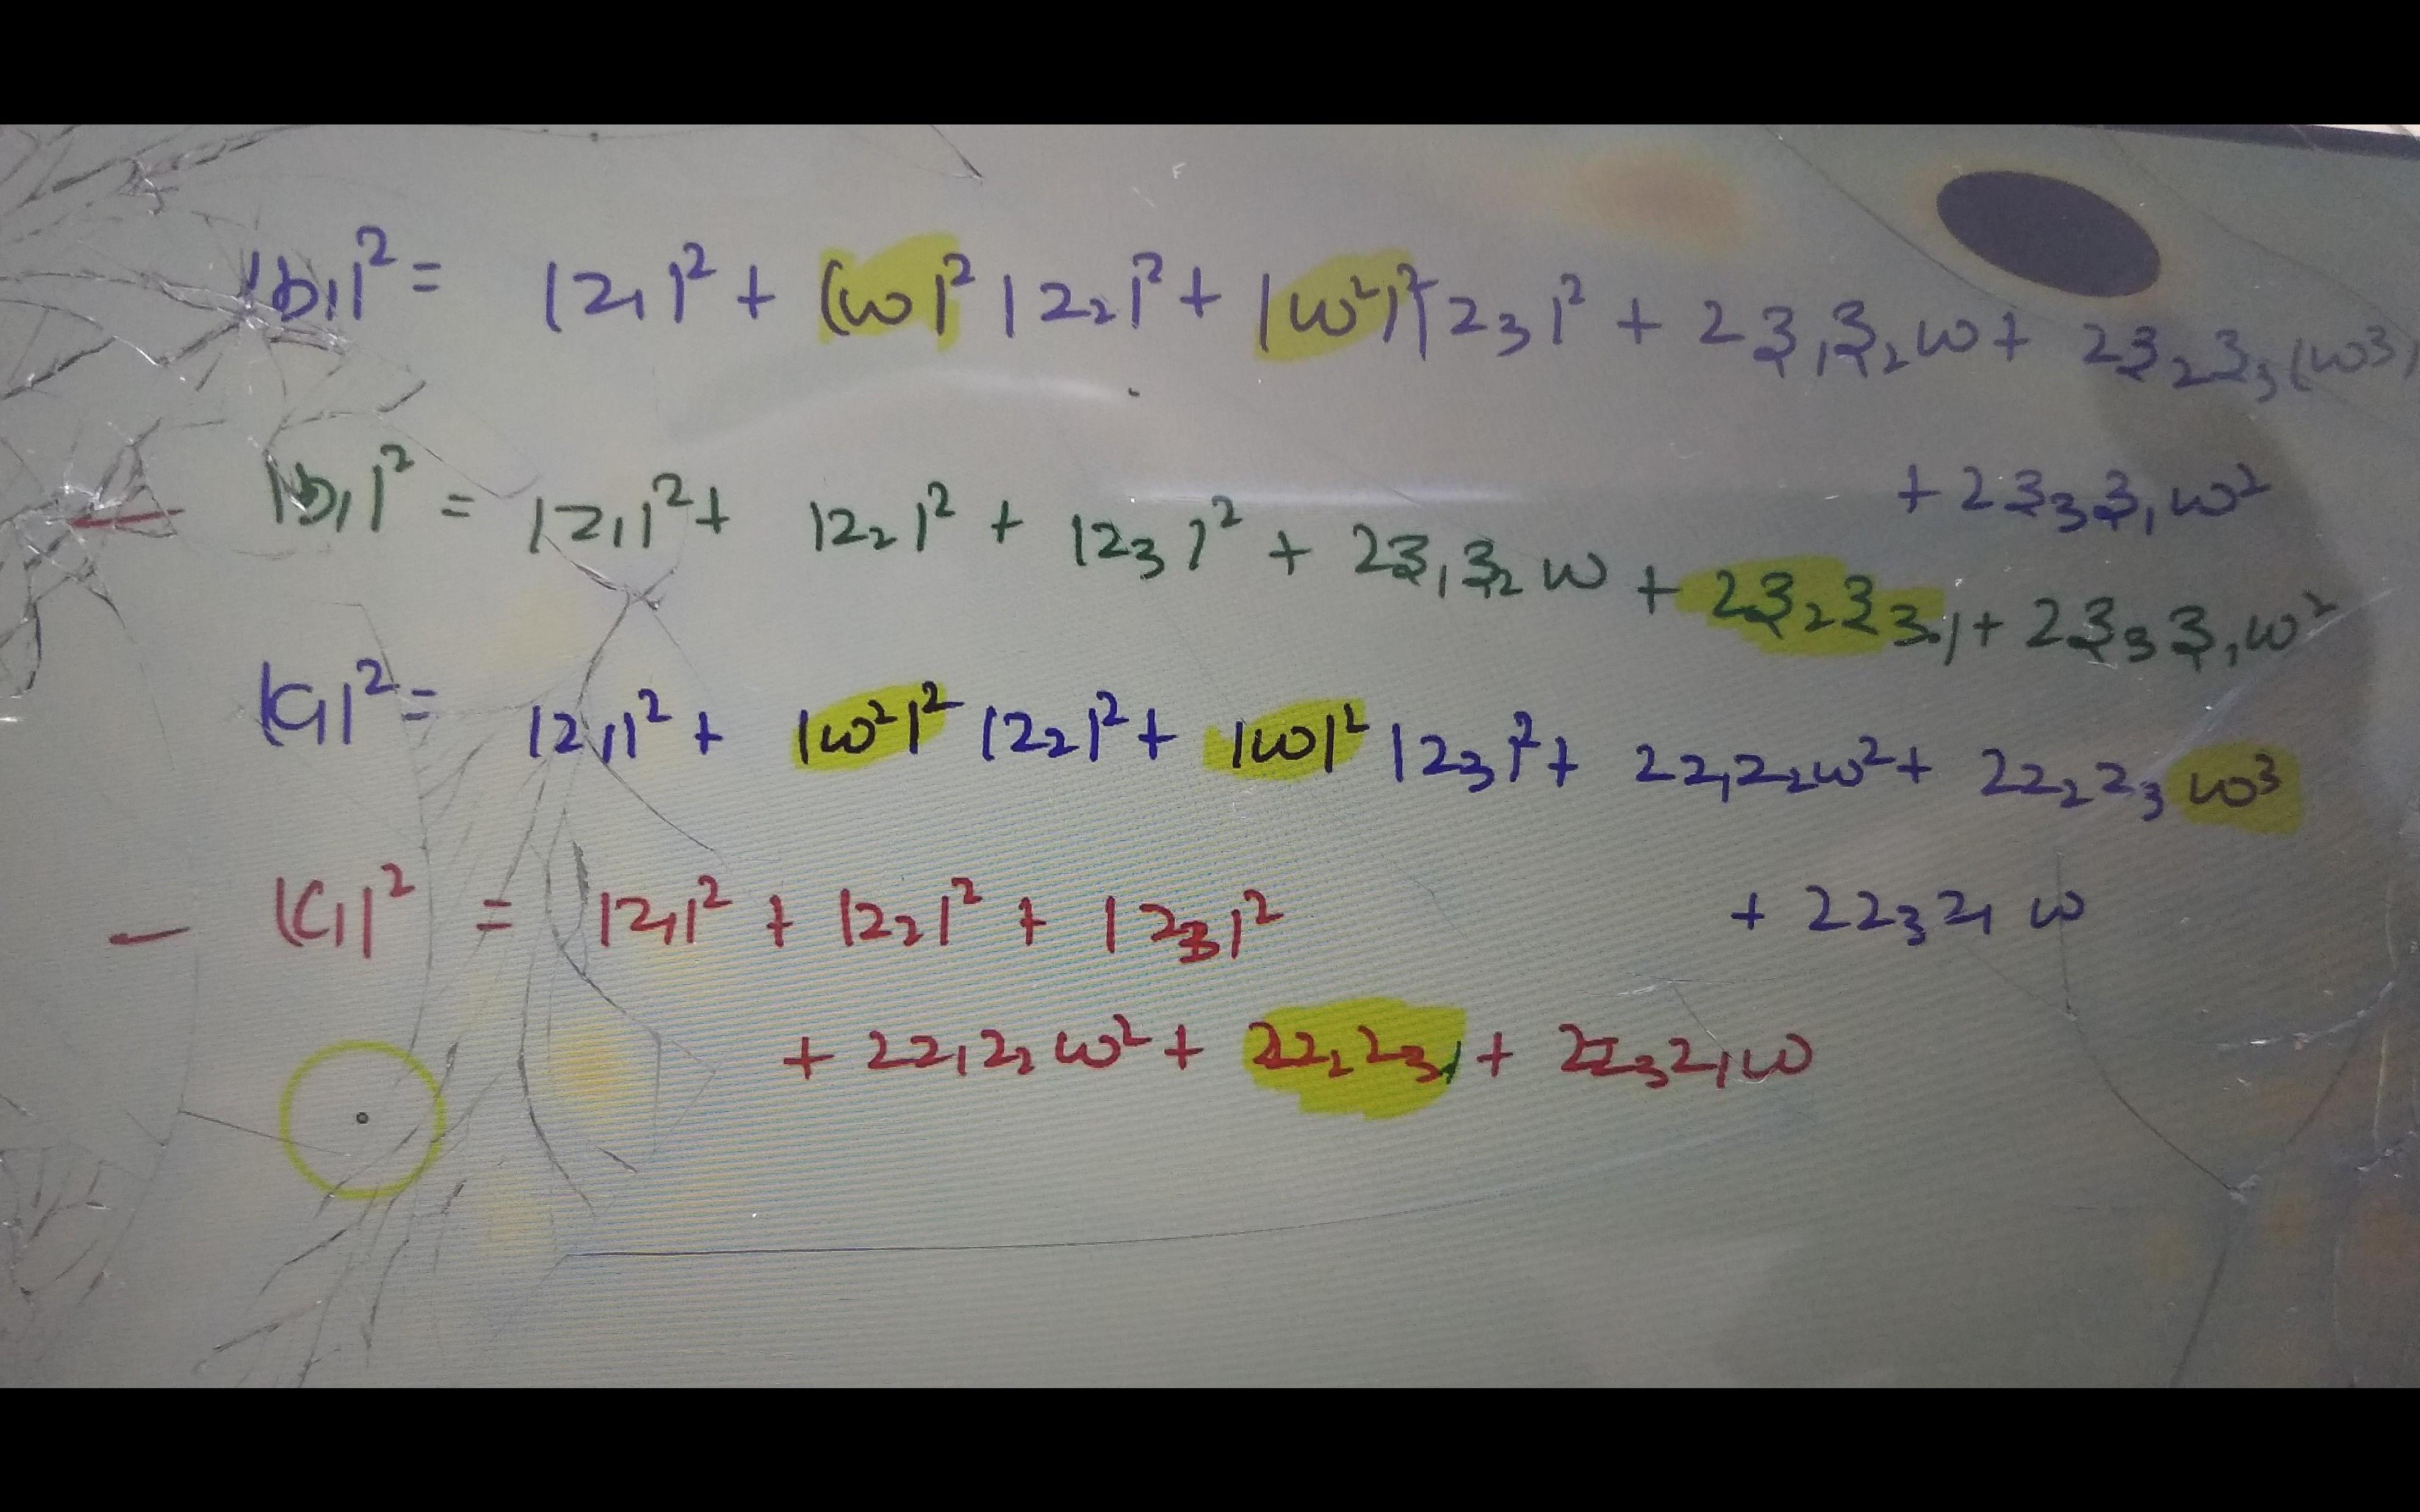 |b₁|² = |z₁|² + (ω|² |z₂|² + |ω²|² |z₃|² + 2z₁z₂ω + 2z₂z₃(ω³)
+ 2z₃z₁ω²
|b₁|² = |z₁|² + |z₂|² + |z₃|² + 2z₁z₂ω + 2z₂z₃,1 + 2z₃z₁ω²
|c₁|² = |z₁|² + |ω²|² |z₂|² + |ω|² |z₃|² + 2z₁z₂ω² + 2z₂z₃ω³
+ 2z₃z₁ω
— |c₁|² = |z₁|² + |z₂|² + |z₃|²
+ 2z₁z₂ω² + 2z₂z₃,1 + 2z₃z₁ω